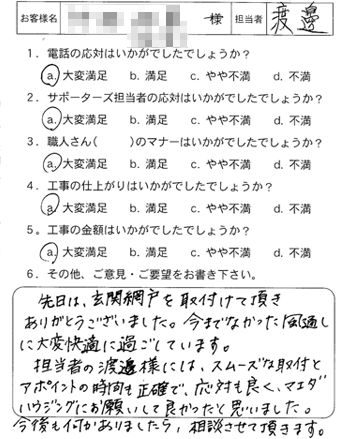 お客様名 様 担当者 渡邊
1．電話の応対はいかがでしたでしょうか？
a. 大変満足 b. 満足 c. やや不満 d. 不満
2．サポーターズ担当者の応対はいかがでしたでしょうか？
a. 大変満足 b. 満足 c. やや不満 d. 不満
3．職人さん(　　　)のマナーはいかがでしたでしょうか？
a. 大変満足 b. 満足 c. やや不満 d. 不満
4．工事の仕上がりはいかがでしたでしょうか？
a. 大変満足 b. 満足 c. やや不満 d. 不満
5．工事の金額はいかがでしたでしょうか？
a. 大変満足 b. 満足 c. やや不満 d. 不満
6．その他、ご意見・ご要望をお書き下さい。
先日は、玄関網戸を取付けて頂き
ありがとうございました。今までなかった風通し
に大変快適に過ごしています。
担当者の渡邊様には、スムーズな取付と
アポイントの時間も正確で、応対も良く、マエダ
ハウジングにお願いして良かったと思いました。
今後も何かありましたら、相談させて頂きます。